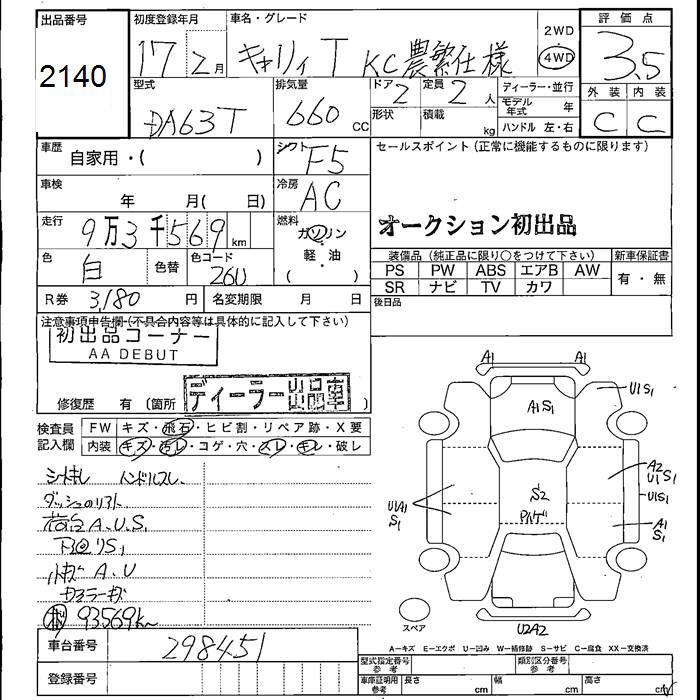 出品番号
2140
初度登録年月
17年2月
車名・グレード
キャリイ T KC農繁仕様
2WD
4WD
評価点
3.5
外装 内装
C C
型式
DA63T
排気量
660 CC
ドア 2
形状
定員 2 人
積載 kg
ディーラー・並行
モデル年式 年
ハンドル 左・右
車歴
自家用・( )
シフト F5
車検
年 月( 日)
冷房 AC
走行
9万3千569km
燃料
ガソリン
軽・油
( )
色
白
色替
色コード
26U
R券 3,180 円
名変期限 月 日
セールスポイント (正常に機能するものに限ります)
オークション初出品
装備品 (純正品に限り○をつけて下さい)
PS PW ABS エアB AW
SR ナビ TV カワ
新車保証書
有・無
後日品
注意事項申告欄-(不具合内容等は具体的に記入して下さい)
初出品コーナー
AA DEBUT
修復歴 有 (箇所 )
ディーラー出品車
検査員記入欄
FW キズ・飛石・ヒビ割・リペア跡・X要
内装 キズ・汚レ・コゲ・穴・スレ・キレ・破レ
シートキレ ハンドルスレ
荷台A.U.S
A.U
93569km
A1
A1
A1 S1
U1 S1
A2
U1 S1
U1 S1
S2
U1 A1
S1
A1
S1
U2 A2
スペア
A−キズ E−エクボ U−凹み W−補修跡 S−サビ C−腐食 XX−交換済
車台番号 298451
登録番号
型式指定番号参考
類別区分番号参考
車庫証明用参考 長さ cm 幅 cm 高さ cm